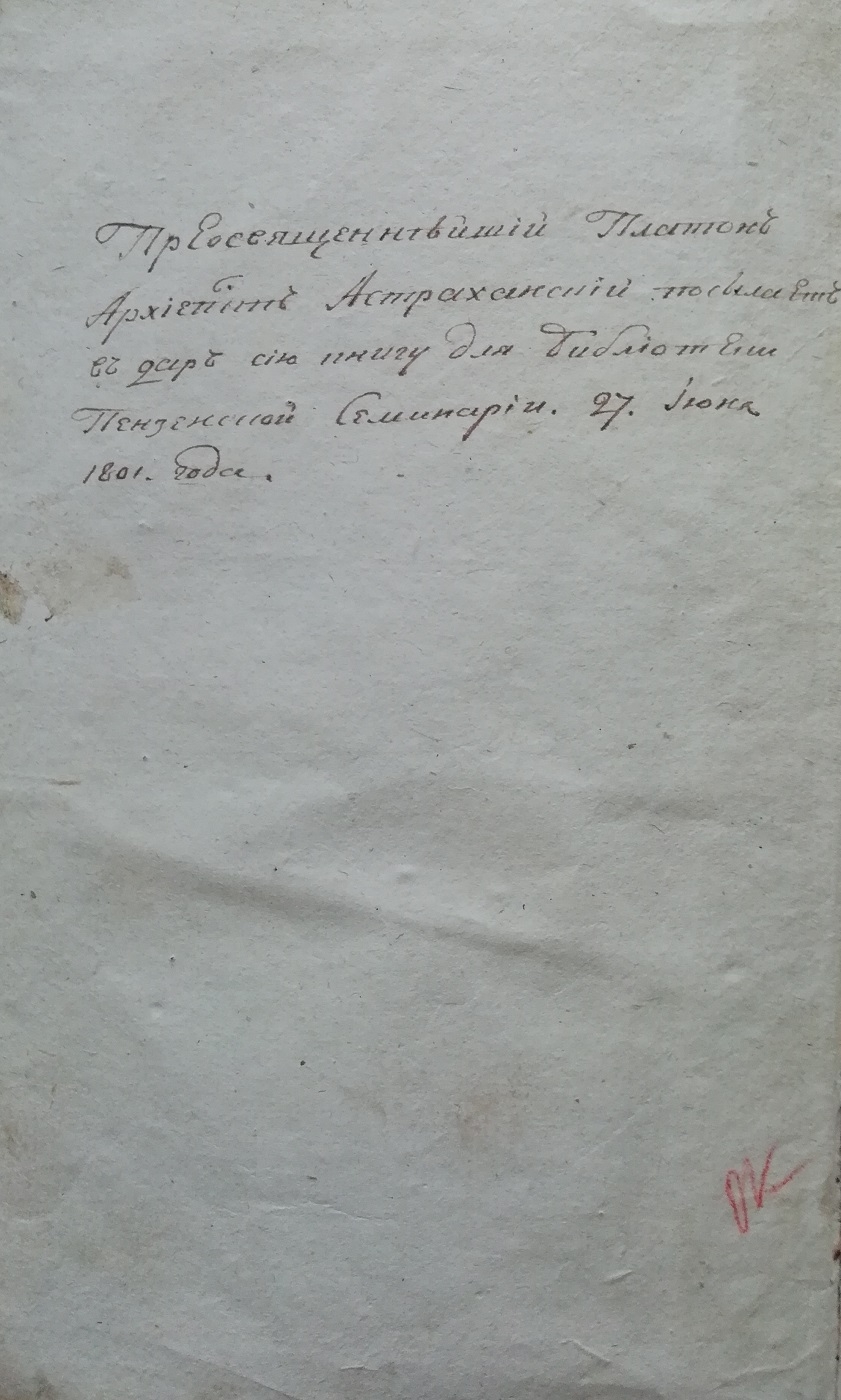 Преосвященнѣйшій Платонъ
Архіепⷭ҇пъ Астраханскій посылаетъ
въ даръ сію книгу для Библіотеки
Пензенской Семинаріи. 27. Іюня
1801. года.